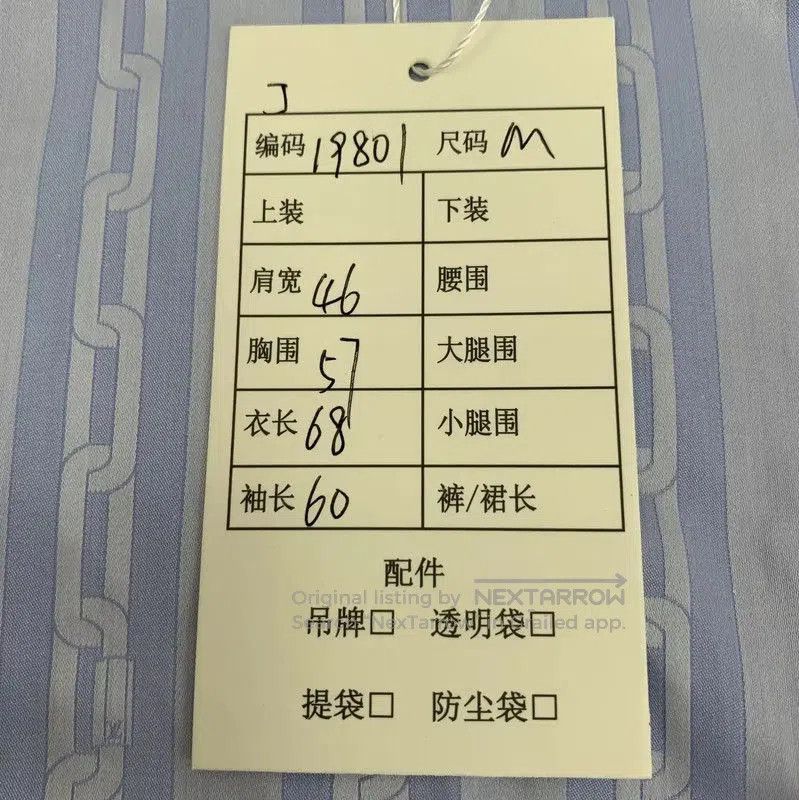 J
编码 19801 尺码 M
上装 下装
肩宽 46 腰围
胸围 57 大腿围
衣长 68 小腿围
袖长 60 裤/裙长
配件
Original listing by NEXTARROW
吊牌□ 透明袋□
提袋□ 防尘袋□